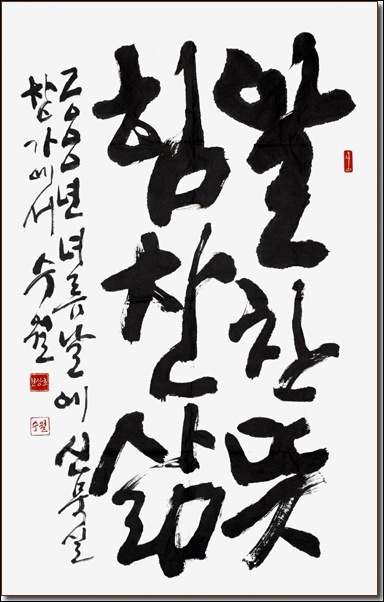 알찬뜻
힘찬삶
2000년 녀름날에 신묵실
창가에서 수월
수월